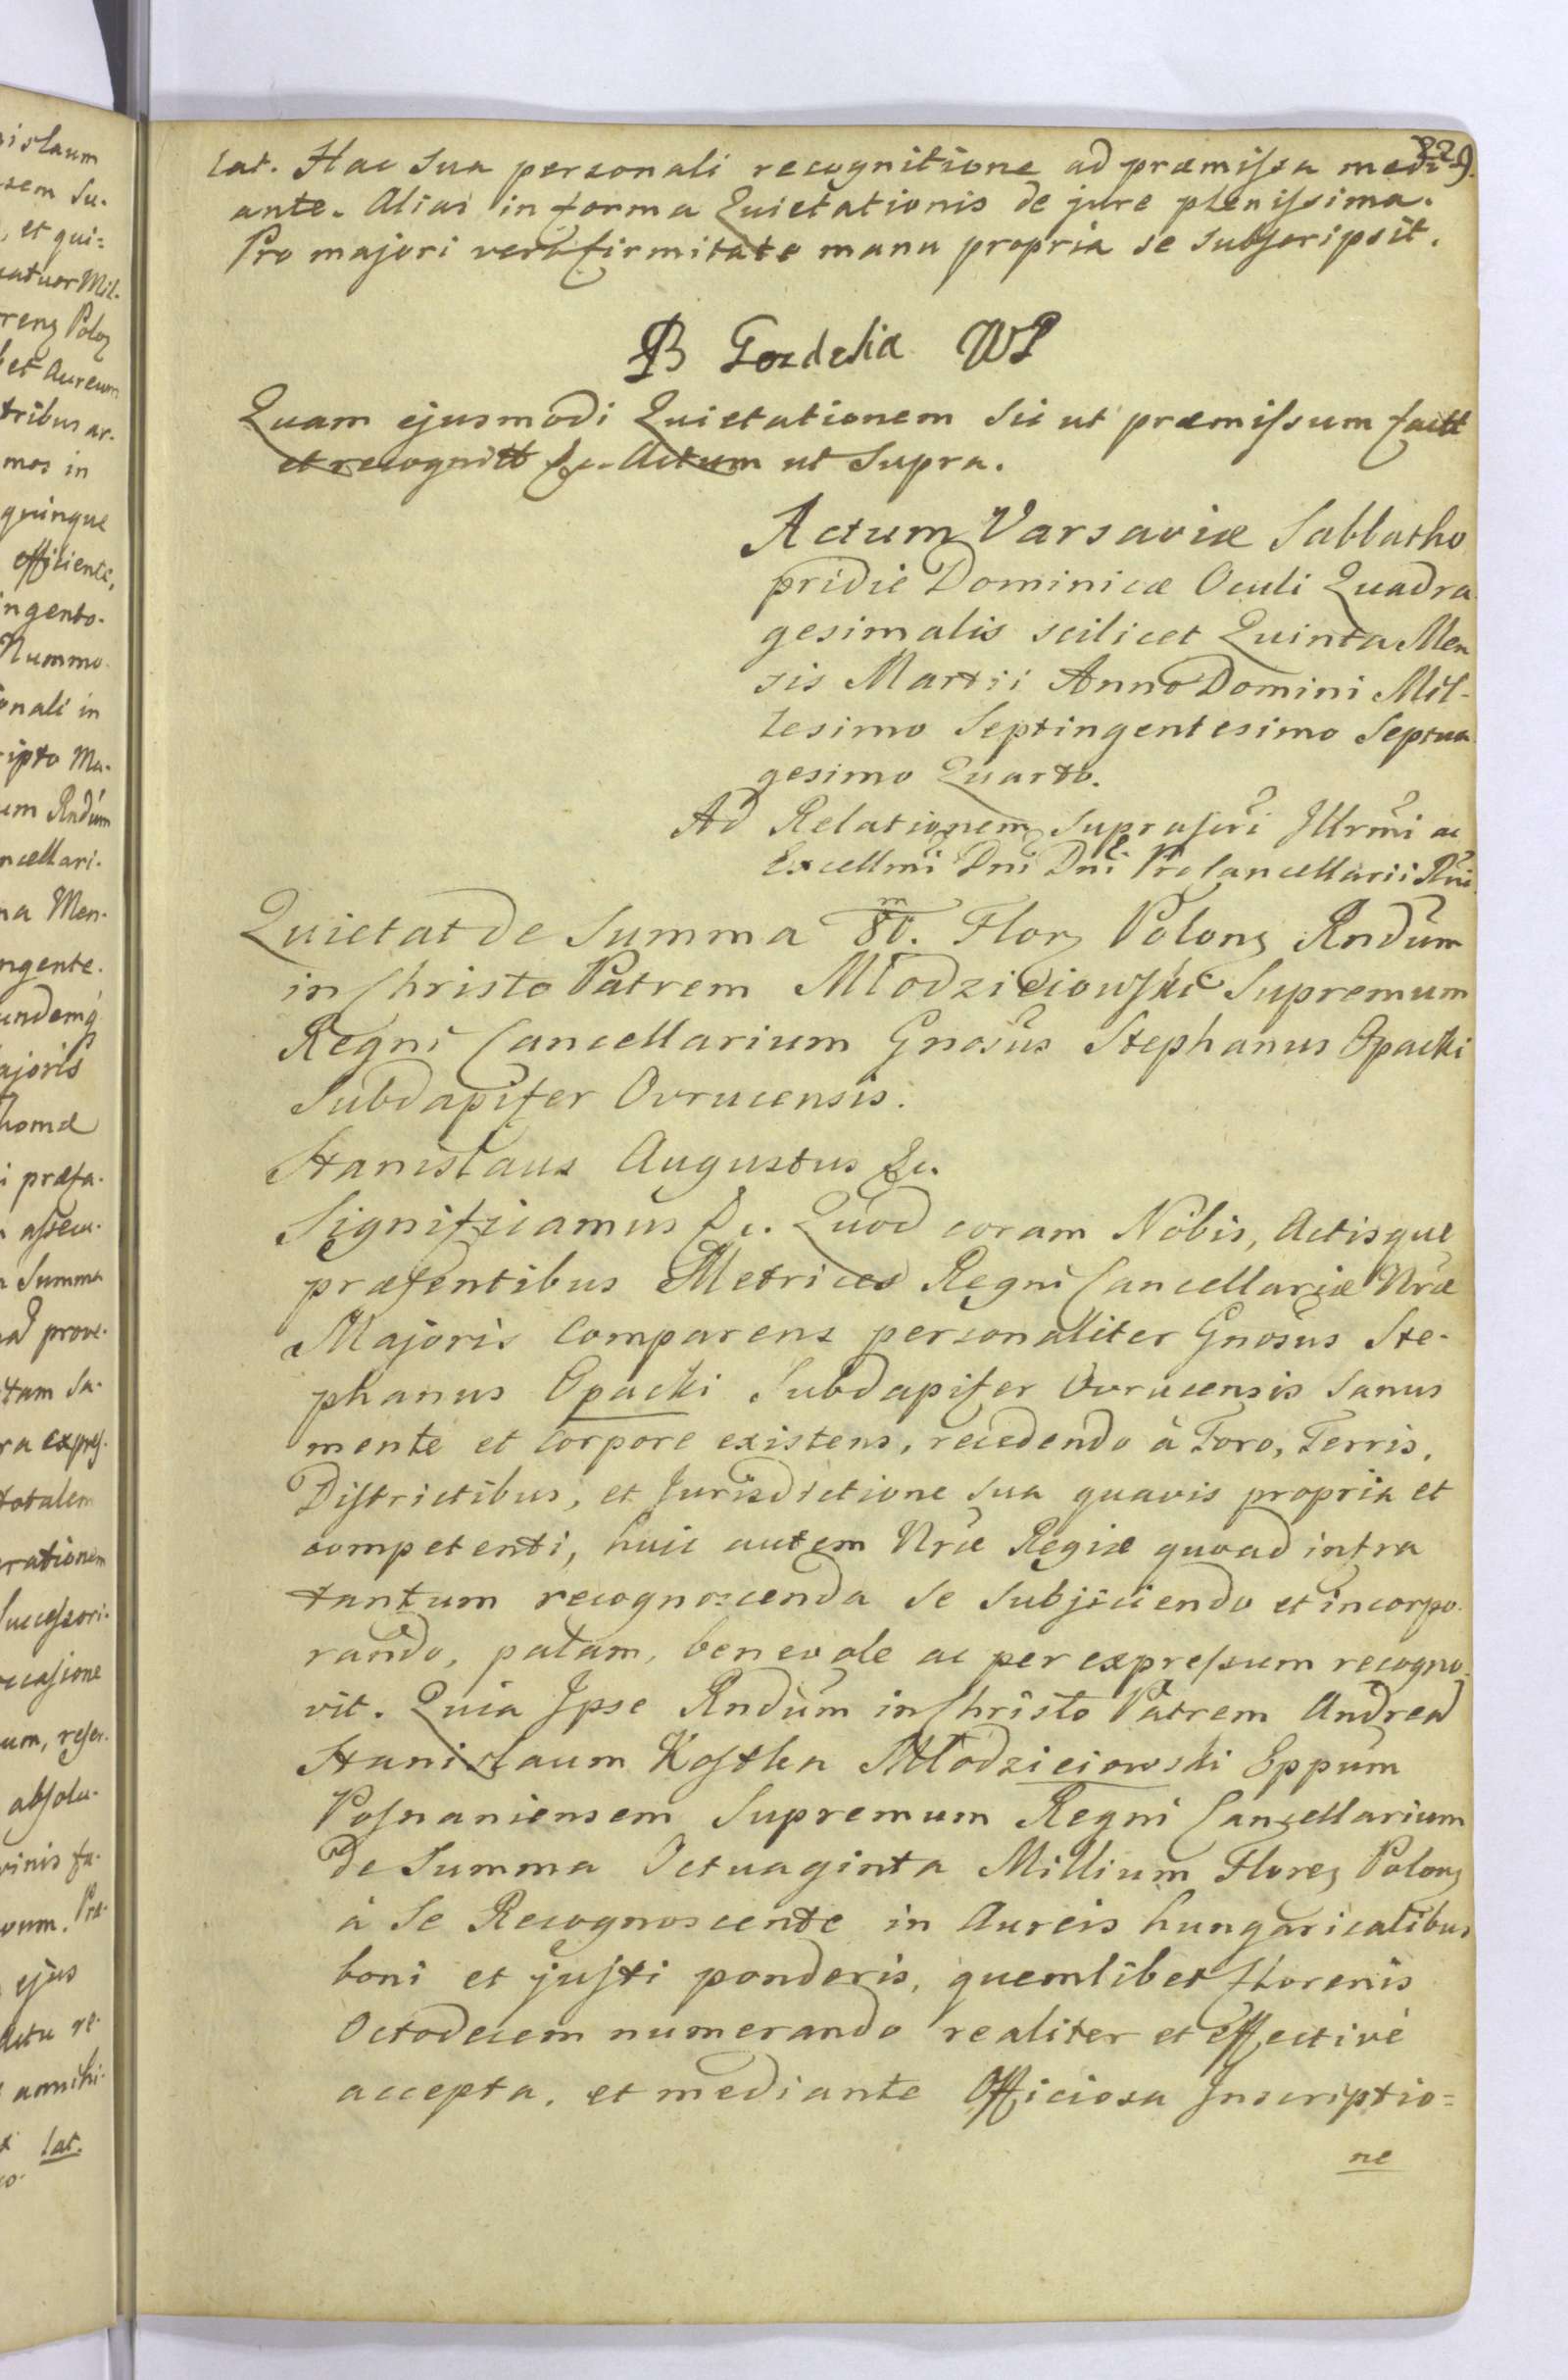 229.
lat. Hac Sua personali recognitione ad præmiſsa medi
ante. Alias in forma Quietationis de jure pleniſsima.
Pro majori vero firmitate manu propria se Subſcripsit.
B Gordelia WP
Quam ejusmodi Quietationem Sic ut præmiſsum facit
et recognitt &c. Actum ut Supra.
Actum Varsaviæ Sabbatho
pridie Dominicæ Oculi Quadra
gesimalis scilicet Quinta Men
sis Martii Anno Domini Mil-
lesimo Septingentesimo Septua
gesimo Quarto.
Ad Relationem Supraſcri Jllrmi ac
Excellmi Dni Dni ProCancellarii Rni
Quietat de Summa 80.m Flor Polon Rndum
in Christo Patrem Młodzieiowſki Supremum
Regni Cancellarium Gnosus Stephanus Opacki
Subdapifer Ovrucensis.
Stanislaus Augustus &c.
Significamus &c. Quod coram Nobis, Actisque
præſentibus Metrices Regni Cancellariæ Nræ
Majoris Comparens personaliter Gnosus Ste-
phanus Opacki Subdapifer Ovrucensis Sanus
mente et Corpore existens, recedendo à Foro, Terris,
Diſtrictibus, et Jurisdictione sua quavis propria et
competenti, huic autem Nræ Regiæ quoad infra
tantum recognoscenda Se Subjiciendo et incorpo-
rando, palam, benevole ac per expreſsum recogno-
vit. Quia Jpse Rndum in Christo Patrem Andream
Stanislaum Koſtka Młodzieiowski Eppum
Poſnaniensem Supremum Regni Cancellarium
de Summa Octuaginta Millium Floren Polon
à Se Recognoscente in Aureis hungaricalibus
boni et juſti ponderis, quemlibet florenis
Octodecem numerando realiter et effective
accepta, et mediante Officiosa Jnscriptio=
ne